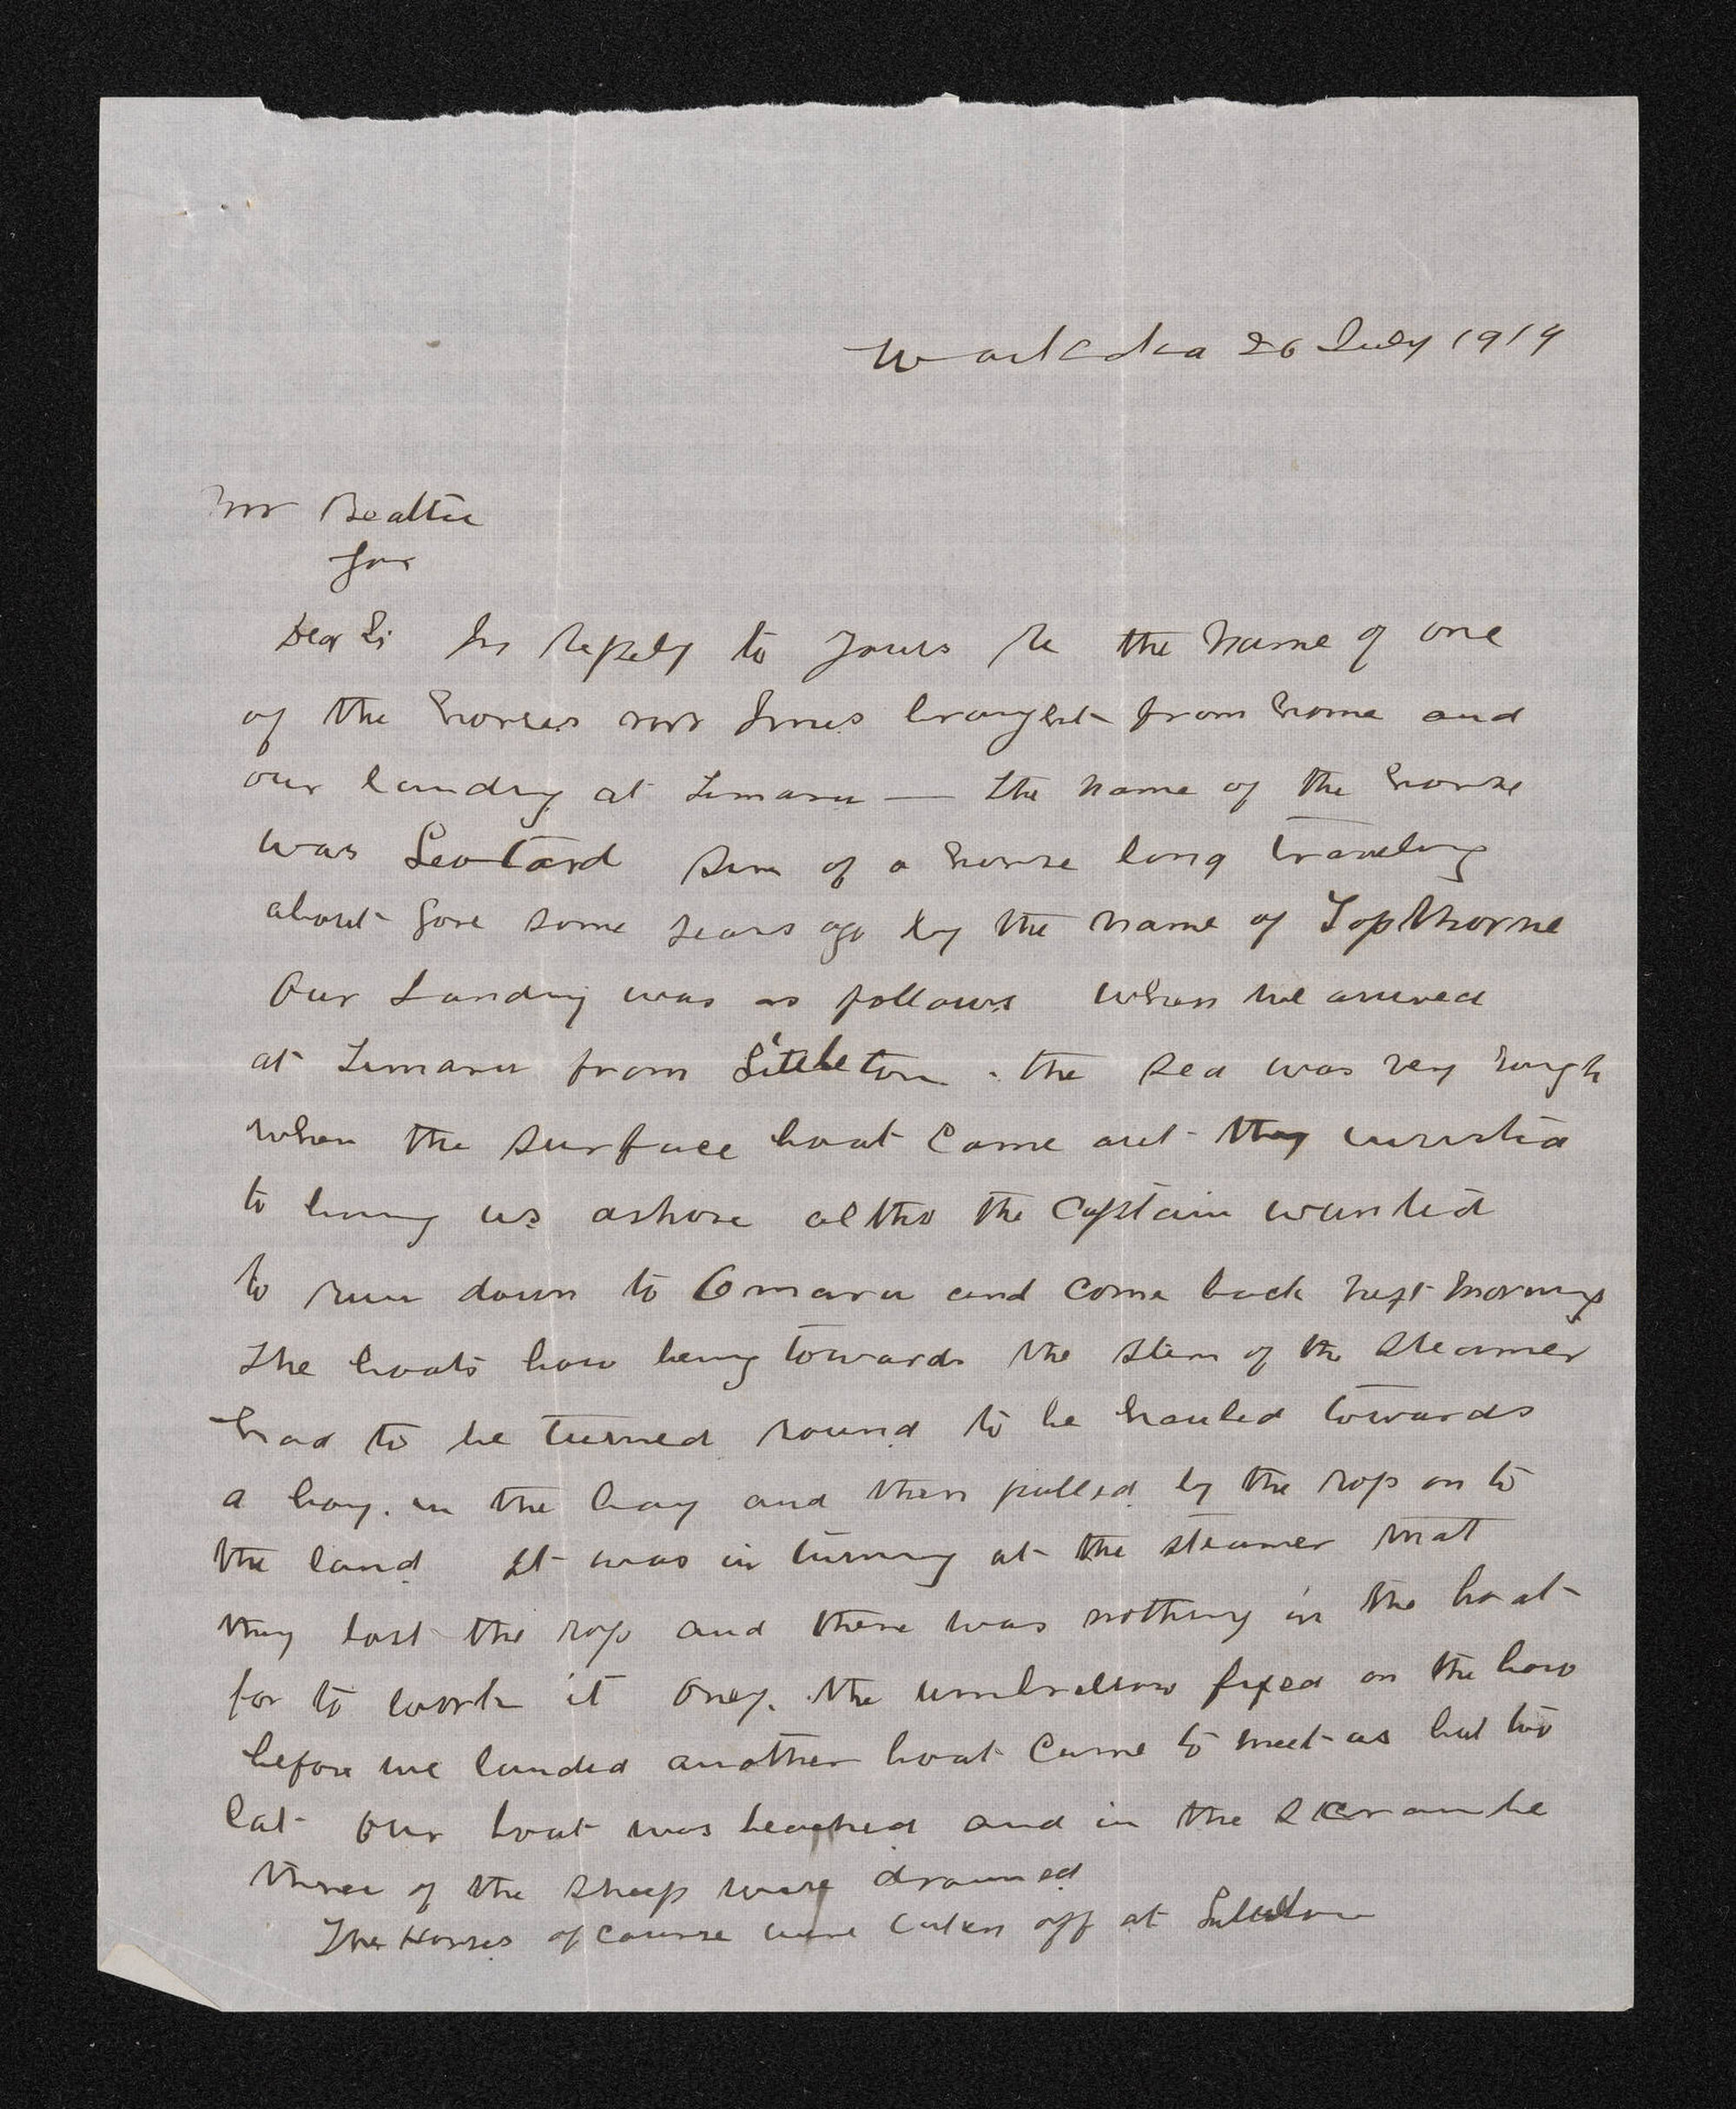 Waikaka 26 July 1919
Mr Beattie
Gore
Dear Sir In reply to yours re the name of one
of the horses Mr Innes brought from home and
our landing at Timaru — The name of the horse
was Leotard sire of a horse long traveling
about Gore some years ago by the name of Topthorne
Our Landing was as follows when we arrived
at Timaru from Littleton . the sea was very rough
when the surface boat came out they insisted
to bring us ashore altho the Captain wanted
to run down to Omaru and come back next morning
The boats bow being towards the stern of the steamer
had to be turned round to be hauled towards
a boy. in the bay and then pulled by the rop on to
the land It was in turning at the steamer that
they lost the rop and there was nothing in the boat
for to work it oney. the fixed on the bow
before we landed another boat came to meet us but too
lat our boat was beached and in the scrambe
three of the sheep were drowned
The Horses of course were taken off at Littleton